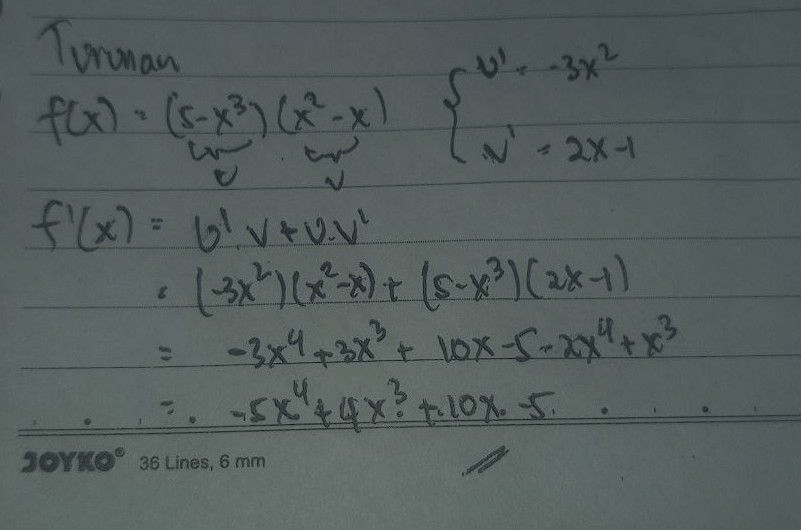 Turunan
f(x) = (5-x³)(x²-x) { U' = -3x²
U V V' = 2x-1
f'(x) = U'.V+U.V'
= (-3x²)(x²-x)+(5-x³)(2x-1)
= -3x⁴+3x³+10x-5-2x⁴+x³
= -5x⁴+4x³+10x-5
JOYKO® 36 Lines, 6 mm